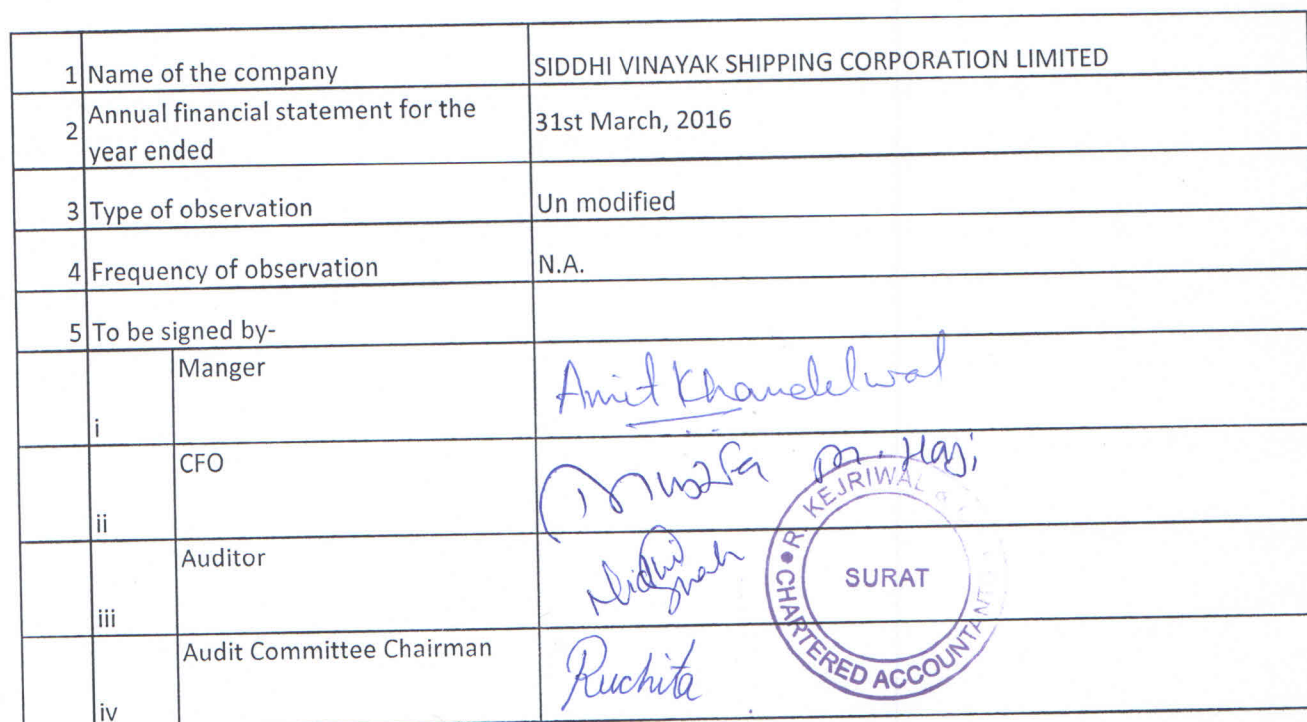 1 Name of the company SIDDHI VINAYAK SHIPPING CORPORATION LIMITED
2 Annual financial statement for the
year ended 31st March, 2016
3 Type of observation Un modified
4 Frequency of observation N.A.
5 To be signed by-
i Manger Amit Khandelwal
ii CFO M. Haji
iii Auditor Nidhi
Shah
iv Audit Committee Chairman Ruchita
R. KEJRIWAL &
CHARTERED ACCOUNTANT
SURAT